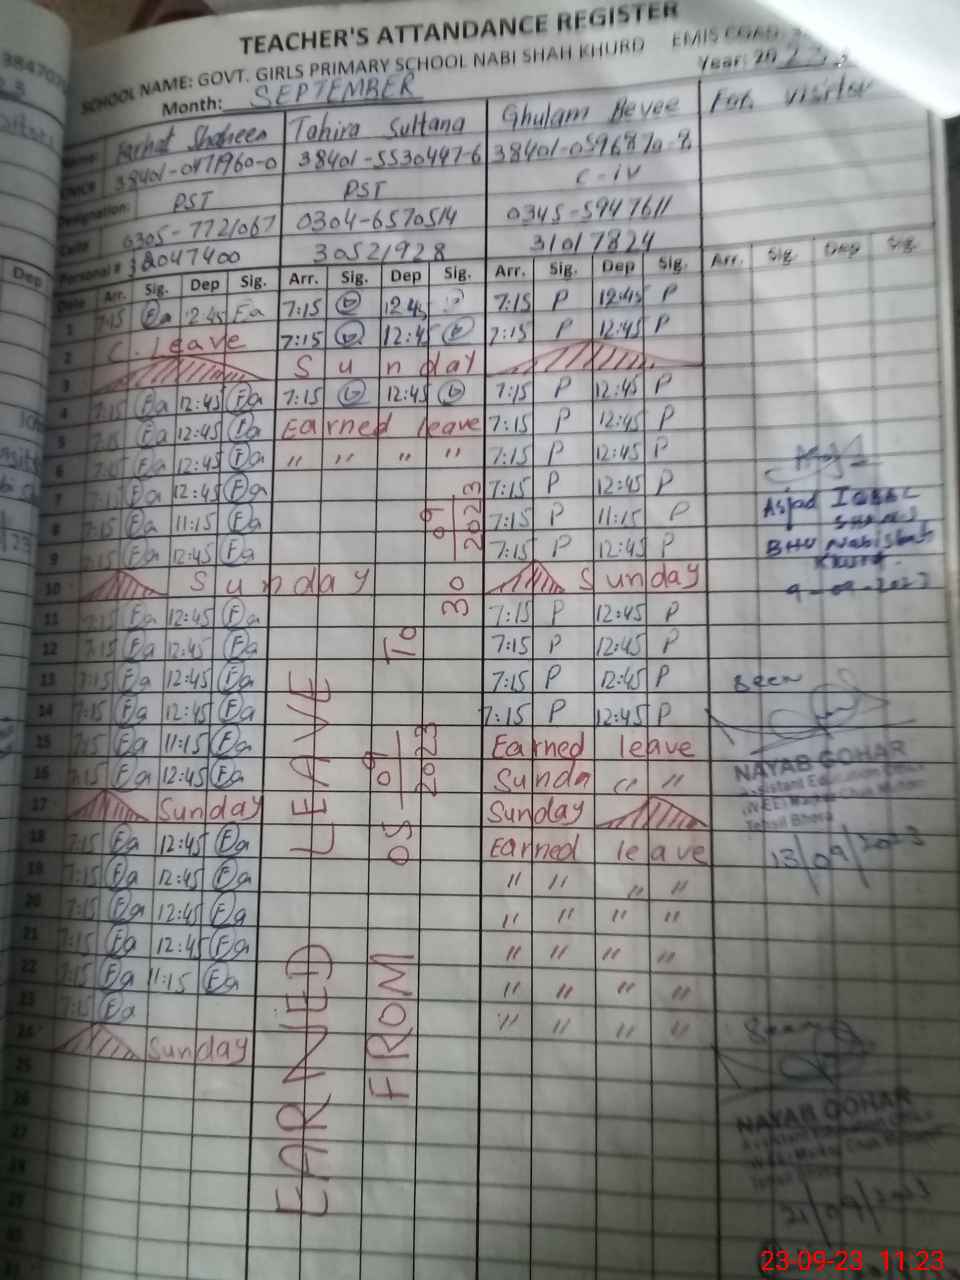 TEACHER'S ATTANDANCE REGISTER
SCHOOL NAME: GOVT. GIRLS PRIMARY SCHOOL NABI SHAH KHURD EMIS
Month: SEPTEMBER Year: 2023
Farhat Shaheen Tahira Sultana Ghulam Bevee For visitor
38401-0471960-0 38401-5530447-6 38401-0596870-8
Designation PST PST C-iv
0305-7721067 0304-6570514 0345-5947611
Personal # 30521928 31017824
Date Arr. Sig. Dep Sig. Arr. Sig. Dep Sig. Arr. Sig. Dep Sig. Arr. Sig. Dep Sig.
1 7:15 Fa 12:45 Fa 7:15 12:45 7:15 P 12:45 P
2 C. Leave 7:15 12:45 7:15 P 12:45 P
3 Sunday
4 7:15 Fa 12:45 Fa 7:15 12:45 7:15 P 12:45 P
5 7:15 Fa 12:45 Fa Earned leave 7:15 P 12:45 P
6 7:15 Fa 12:45 Fa " " " " 7:15 P 12:45 P
7 7:15 Fa 12:45 Fa 7:15 P 12:45 P
8 7:15 Fa 11:15 Fa 7:15 P 11:15 P
9 7:15 Fa 12:45 Fa 7:15 P 12:45 P
10 Sunday Sunday
11 7:15 Fa 12:45 Fa 7:15 P 12:45 P
12 7:15 Fa 12:45 Fa 7:15 P 12:45 P
13 7:15 Fa 12:45 Fa 7:15 P 12:45 P
14 7:15 Fa 12:45 Fa 7:15 P 12:45 P
15 7:15 Fa 11:15 Fa Earned leave
16 7:15 Fa 12:45 Fa Sunda " "
17 Sunday Sunday
18 7:15 Fa 12:45 Fa Earned leave
19 7:15 Fa 12:45 Fa " " " "
20 7:15 Fa 12:45 Fa " " " "
21 7:15 Fa 12:45 Fa " " " "
22 7:15 Fa 11:15 Fa " " " "
23 7:15 Fa " " " "
24 Sunday
25
26
27
28
29
30
EARNED LEAVE
FROM 05 09 2023 To 30 09 2023
Asjad Iqbal
BHU Nabishah
Khurd
9-09-2023
Seen
NAYAB GOHAR
Assistant Education Officer
Tehsil Bhera
13/09/2023
Seen
NAYAB GOHAR
21/09/2023
23-09-23 11:23